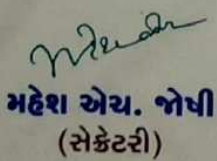 મહેશ એચ. જોષી
(સેક્રેટરી)